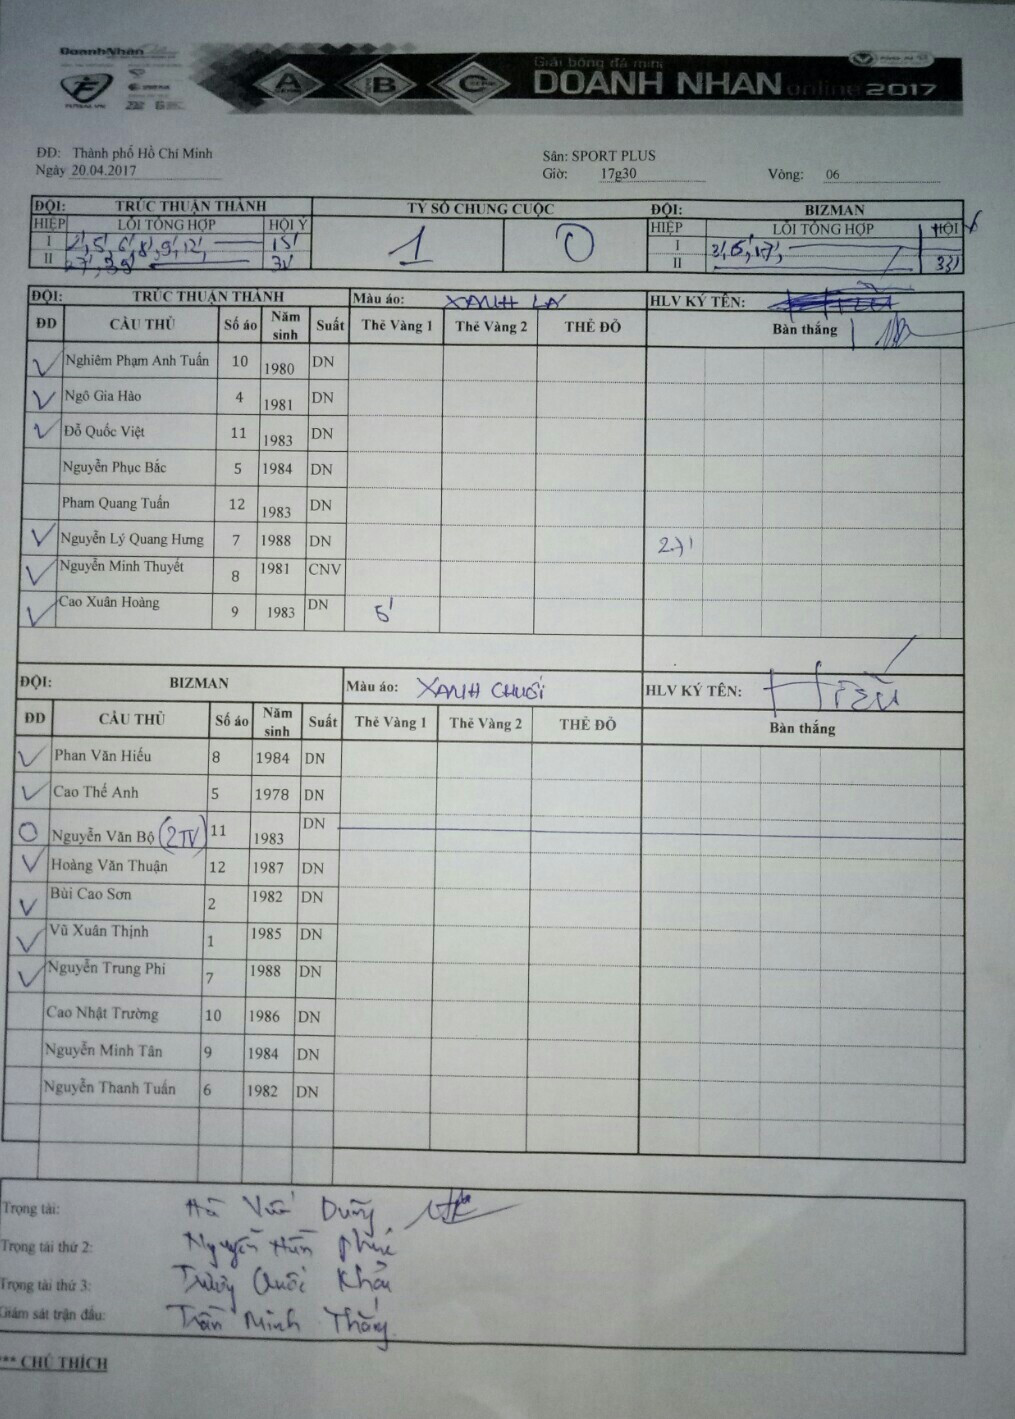 DoanhNhân
A B C
Giải bóng đá mini
DOANH NHAN online 2017
ĐĐ: Thành phố Hồ Chí Minh Sân: SPORT PLUS
Ngày 20.04.2017 Giờ: 17g30 Vòng: 06
ĐỘI: TRÚC THUẬN THÀNH TỶ SỐ CHUNG CUỘC ĐỘI: BIZMAN
HIỆP LỖI TỔNG HỢP HỘI Ý 1 0 HIỆP LỖI TỔNG HỢP HỘI
I 2', 5', 6', 8', 9', 12', 15' I
II 27', 39' II 33'
ĐỘI: TRÚC THUẬN THÀNH Màu áo: XANH LÁ HLV KÝ TÊN:
ĐD CẦU THỦ Số áo Năm sinh Suất Thẻ Vàng 1 Thẻ Vàng 2 THẺ ĐỎ Bàn thắng
Nghiêm Phạm Anh Tuấn 10 1980 DN
Ngô Gia Hào 4 1981 DN
Đỗ Quốc Việt 11 1983 DN
Nguyễn Phục Bắc 5 1984 DN
Pham Quang Tuấn 12 1983 DN
Nguyễn Lý Quang Hưng 7 1988 DN 27'
Nguyễn Minh Thuyết 8 1981 CNV
Cao Xuân Hoàng 9 1983 DN 5'
ĐỘI: BIZMAN Màu áo: XANH CHUỐI HLV KÝ TÊN: Hiếu
ĐD CẦU THỦ Số áo Năm sinh Suất Thẻ Vàng 1 Thẻ Vàng 2 THẺ ĐỎ Bàn thắng
Phan Văn Hiếu 8 1984 DN
Cao Thế Anh 5 1978 DN
Nguyễn Văn Bộ (2TV) 11 1983 DN
Hoàng Văn Thuận 12 1987 DN
Bùi Cao Sơn 2 1982 DN
Vũ Xuân Thịnh 1 1985 DN
Nguyễn Trung Phi 7 1988 DN
Cao Nhật Trường 10 1986 DN
Nguyễn Minh Tân 9 1984 DN
Nguyễn Thanh Tuấn 6 1982 DN
Trọng tài: Hà Dũng
Trọng tài thứ 2: Nguyễn
Trọng tài thứ 3: Quốc
Giám sát trận đấu: Trần Minh
*** CHÚ THÍCH